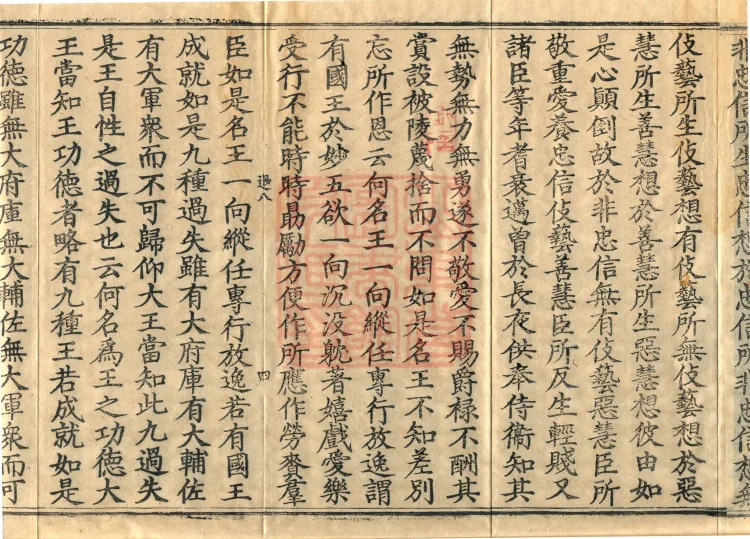 非忠信所生忠信想於忠信所非忠信想
伎藝所生伎藝想有伎藝所無伎藝想於惡
慧所生善慧想於善慧所生惡慧想彼由如
是心顛倒故於非忠信無有伎藝惡慧臣所
敬重愛養忠信伎藝善慧臣所反生輕賤又
諸臣等年耆衰邁曾於長夜供奉侍衞知其
無勢無力無勇遂不敬愛不賜爵祿不酬其
賞設被陵蔑捨而不問如是名王不知差別
忘所作恩云何名王一向縱任專行放逸謂
有國王於妙五欲一向沉没躭著嬉戲愛樂
受行不能時時勗勵方便作所應作勞賚羣
八 四
臣如是名王一向縱任專行放逸若有國王
成就如是九種過失雖有大府庫有大輔佐
有大軍衆而不可歸仰大王當知此九過失
是王自性之過失也云何名爲王之功德大
王當知王功德者略有九種王若成就如是
功德雖無大府庫無大輔佐無大軍衆而可